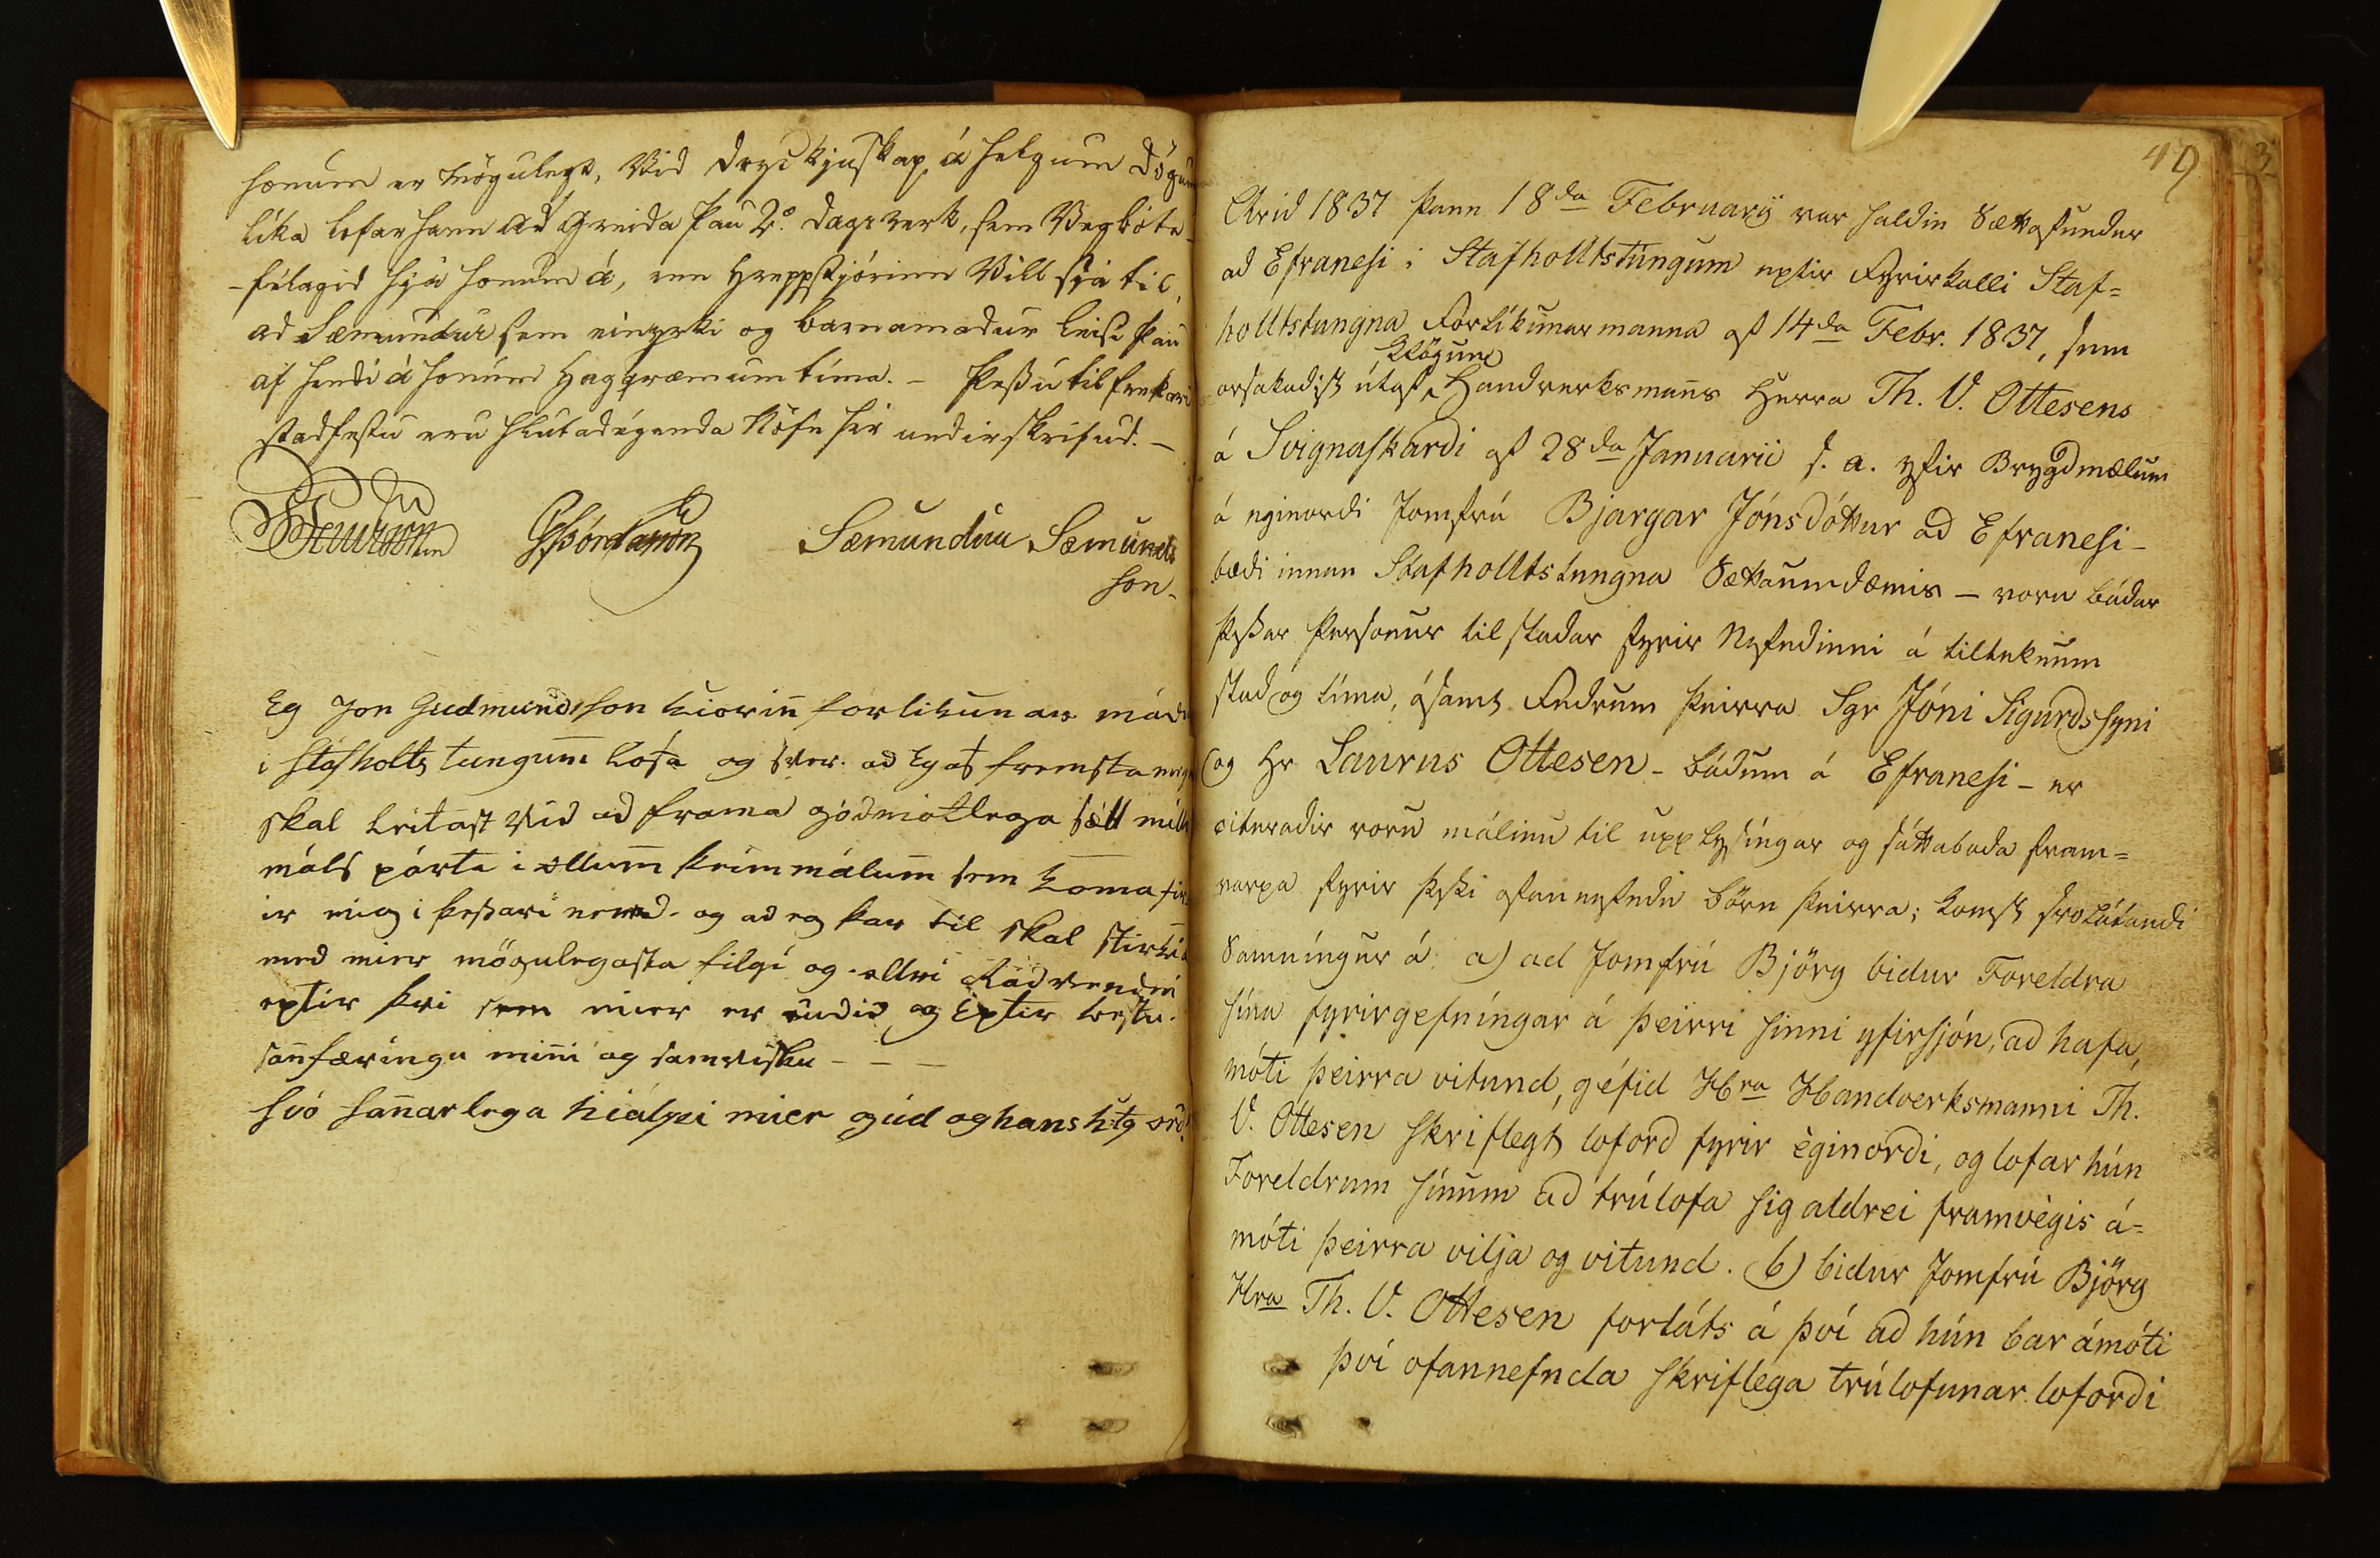 honum er mögulegt, Vid dryckjuskap á helgum dögum
líka lofar hann ad greida þau 2º dagsverk, sem Vegbóta-
-félagid hjá honum á, enn Hreppstjórinn Vill sjá til,
ad Sæmundur sem einyrki og barnamadur leisi þau
af hendi á honum haggvæmum tíma. - Þessu til frekari
stadfestu eru hlutadeigenda Nöfn hér undirskrifud. -
GÞórdarson Sæmundur Sæmunds
son-
Eg Jon Gudmundsson kiörin forlikunar mad
i Stafholts tungum lofa og sver. ad Eg af fremsta megn
skal leitast vid ad frama gódmótlega sætt mille
máls párta i ollum þeim málum sem koma fir-
ir mig i þessari nemd. og ad eg þar til skal stirkia
med mier mögulegasta filgi og ollri Rádvendni
eptir þvi sem mier er audid og Eptir bestu.
sanfæringu mini og samvisku - - -
svo sanarlega hiálpi mier gud og hans h:tg ord!
49
Arid 1837 þann 18da Februarÿ var haldin Sættafundur
ad Efranesi i Stafholltstúngum eptir Fyrirkalli Staf=
holltstungna Forlikunarmanna af 14da Febr. 1837, sem
Klögun
orsakadist útaf Handverksmanns Herra Th. V. Ottesens
á Svignaskardi af 28da Januarii s. a. yfir Brygdmælum
á eginordi Jomfrú Bjargar Jónsdóttur ad Efranesi -
bædi innan Stafholltstungna Sættaumdæmis - voru bádar
þessar Persónur til stadar fyrir Nefndinni á tilteknum
stad og tíma, ásamt Fedrum þeirra Sgr Jóni Sigurdssyni
og Hr Laurus Ottesen - bádum á Efranesi - er
citeradir voru málinu til upplysingar og sáttaboda fram=
varpa fyrir þessi ofannefndu börn þeirra; komst svolátandi
Samníngur á: a) ad Jomfrú Björg bidur Foreldra
sína fyrirgefníngar á þeirri sinni yfirsjón, ad hafa,
móti þeirra vitund, géfid Hra Handverksmanni Th.
V. Ottesen skriflegt loford fyrir èginordi, og lofar hún
Foreldrum sínum ad trúlofa sig aldrei framvègis á=
móti þeirra vilja og vitund. b) bidur Jomfrú Björg
Hra Th. V. Ottesen forláts á því ad hún bar ámóti
því ofannefnda skriflega trúlofunar lofordi